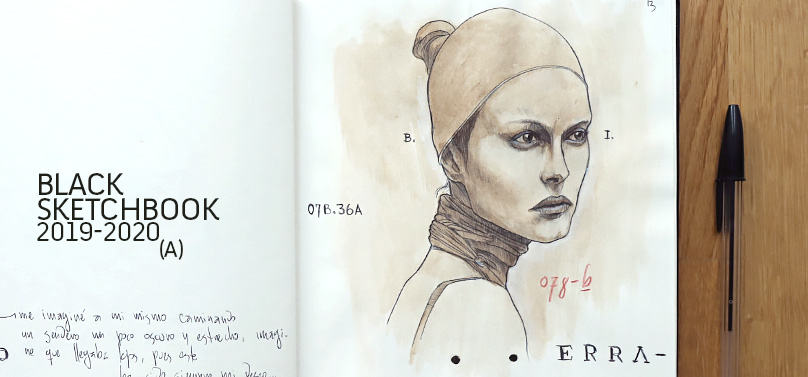 BLACK
SKETCHBOOK
2019-2020
(A)
me imaginé a mi mismo caminando
un sendero un poco oscuro y estrecho, imagi-
ne que llegaba lejos, pues este
13
B.
I.
07B.36A
078-b
ERRA-